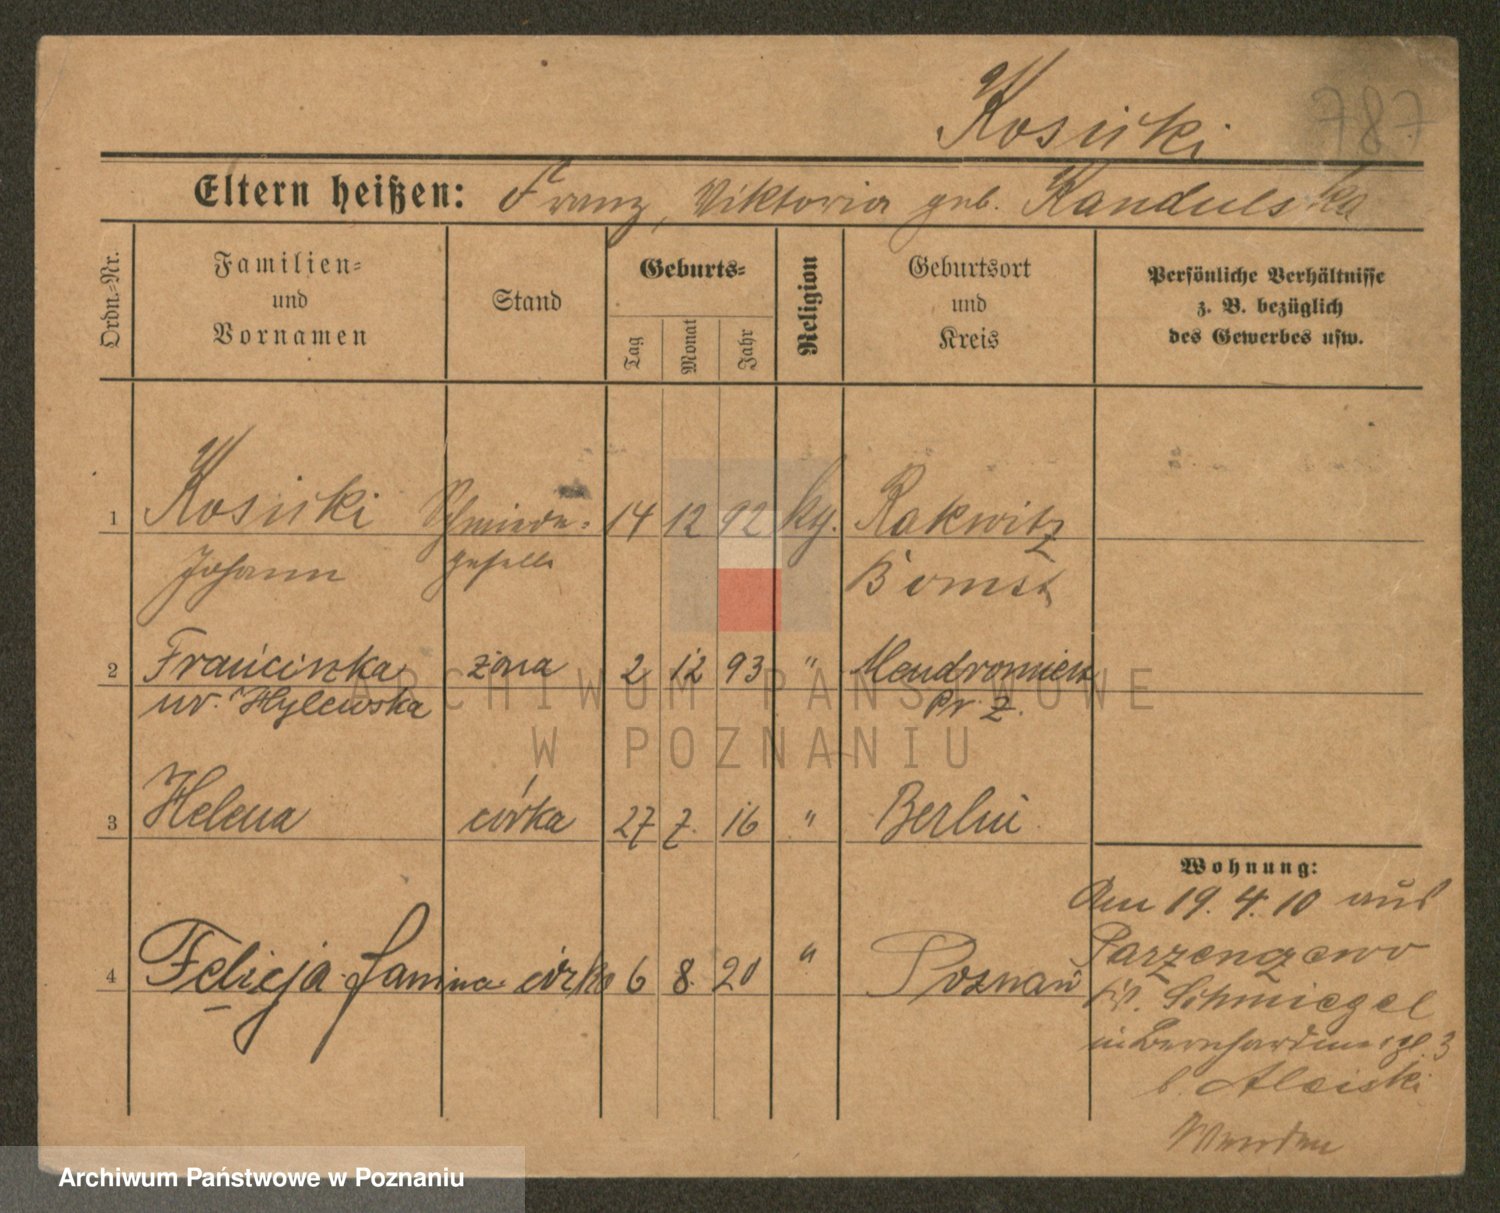 787
Kosicki
Eltern heißen: Franz, Viktoria geb. Kandulska
Ordn.=Nr.
Familien=
und
Vornamen
Stand
Geburts=
Tag
Monat
Jahr
Religion
Geburtsort
und
Kreis
Persönliche Verhältnisse
z. B. bezüglich
des Gewerbes usw.
1 Kosicki Schmiede= 14 12 92 kg. Rakwitz
Johann geselle Bomst
2 Franciszka żona 2 12 93 "
ur. Hylewska Pr. Z.
3 Helena córka 27 7. 16 " Berlin
4 Felicja Janina córka 6 8. 20 " Poznań
Wohnung:
Am 19.4.10 aus
Parzenczewo
Schmiegel
in Bernhardinerpl. 3
b.
ARCHIWUM PAŃSTWOWE
W POZNANIU
Archiwum Państwowe w Poznaniu